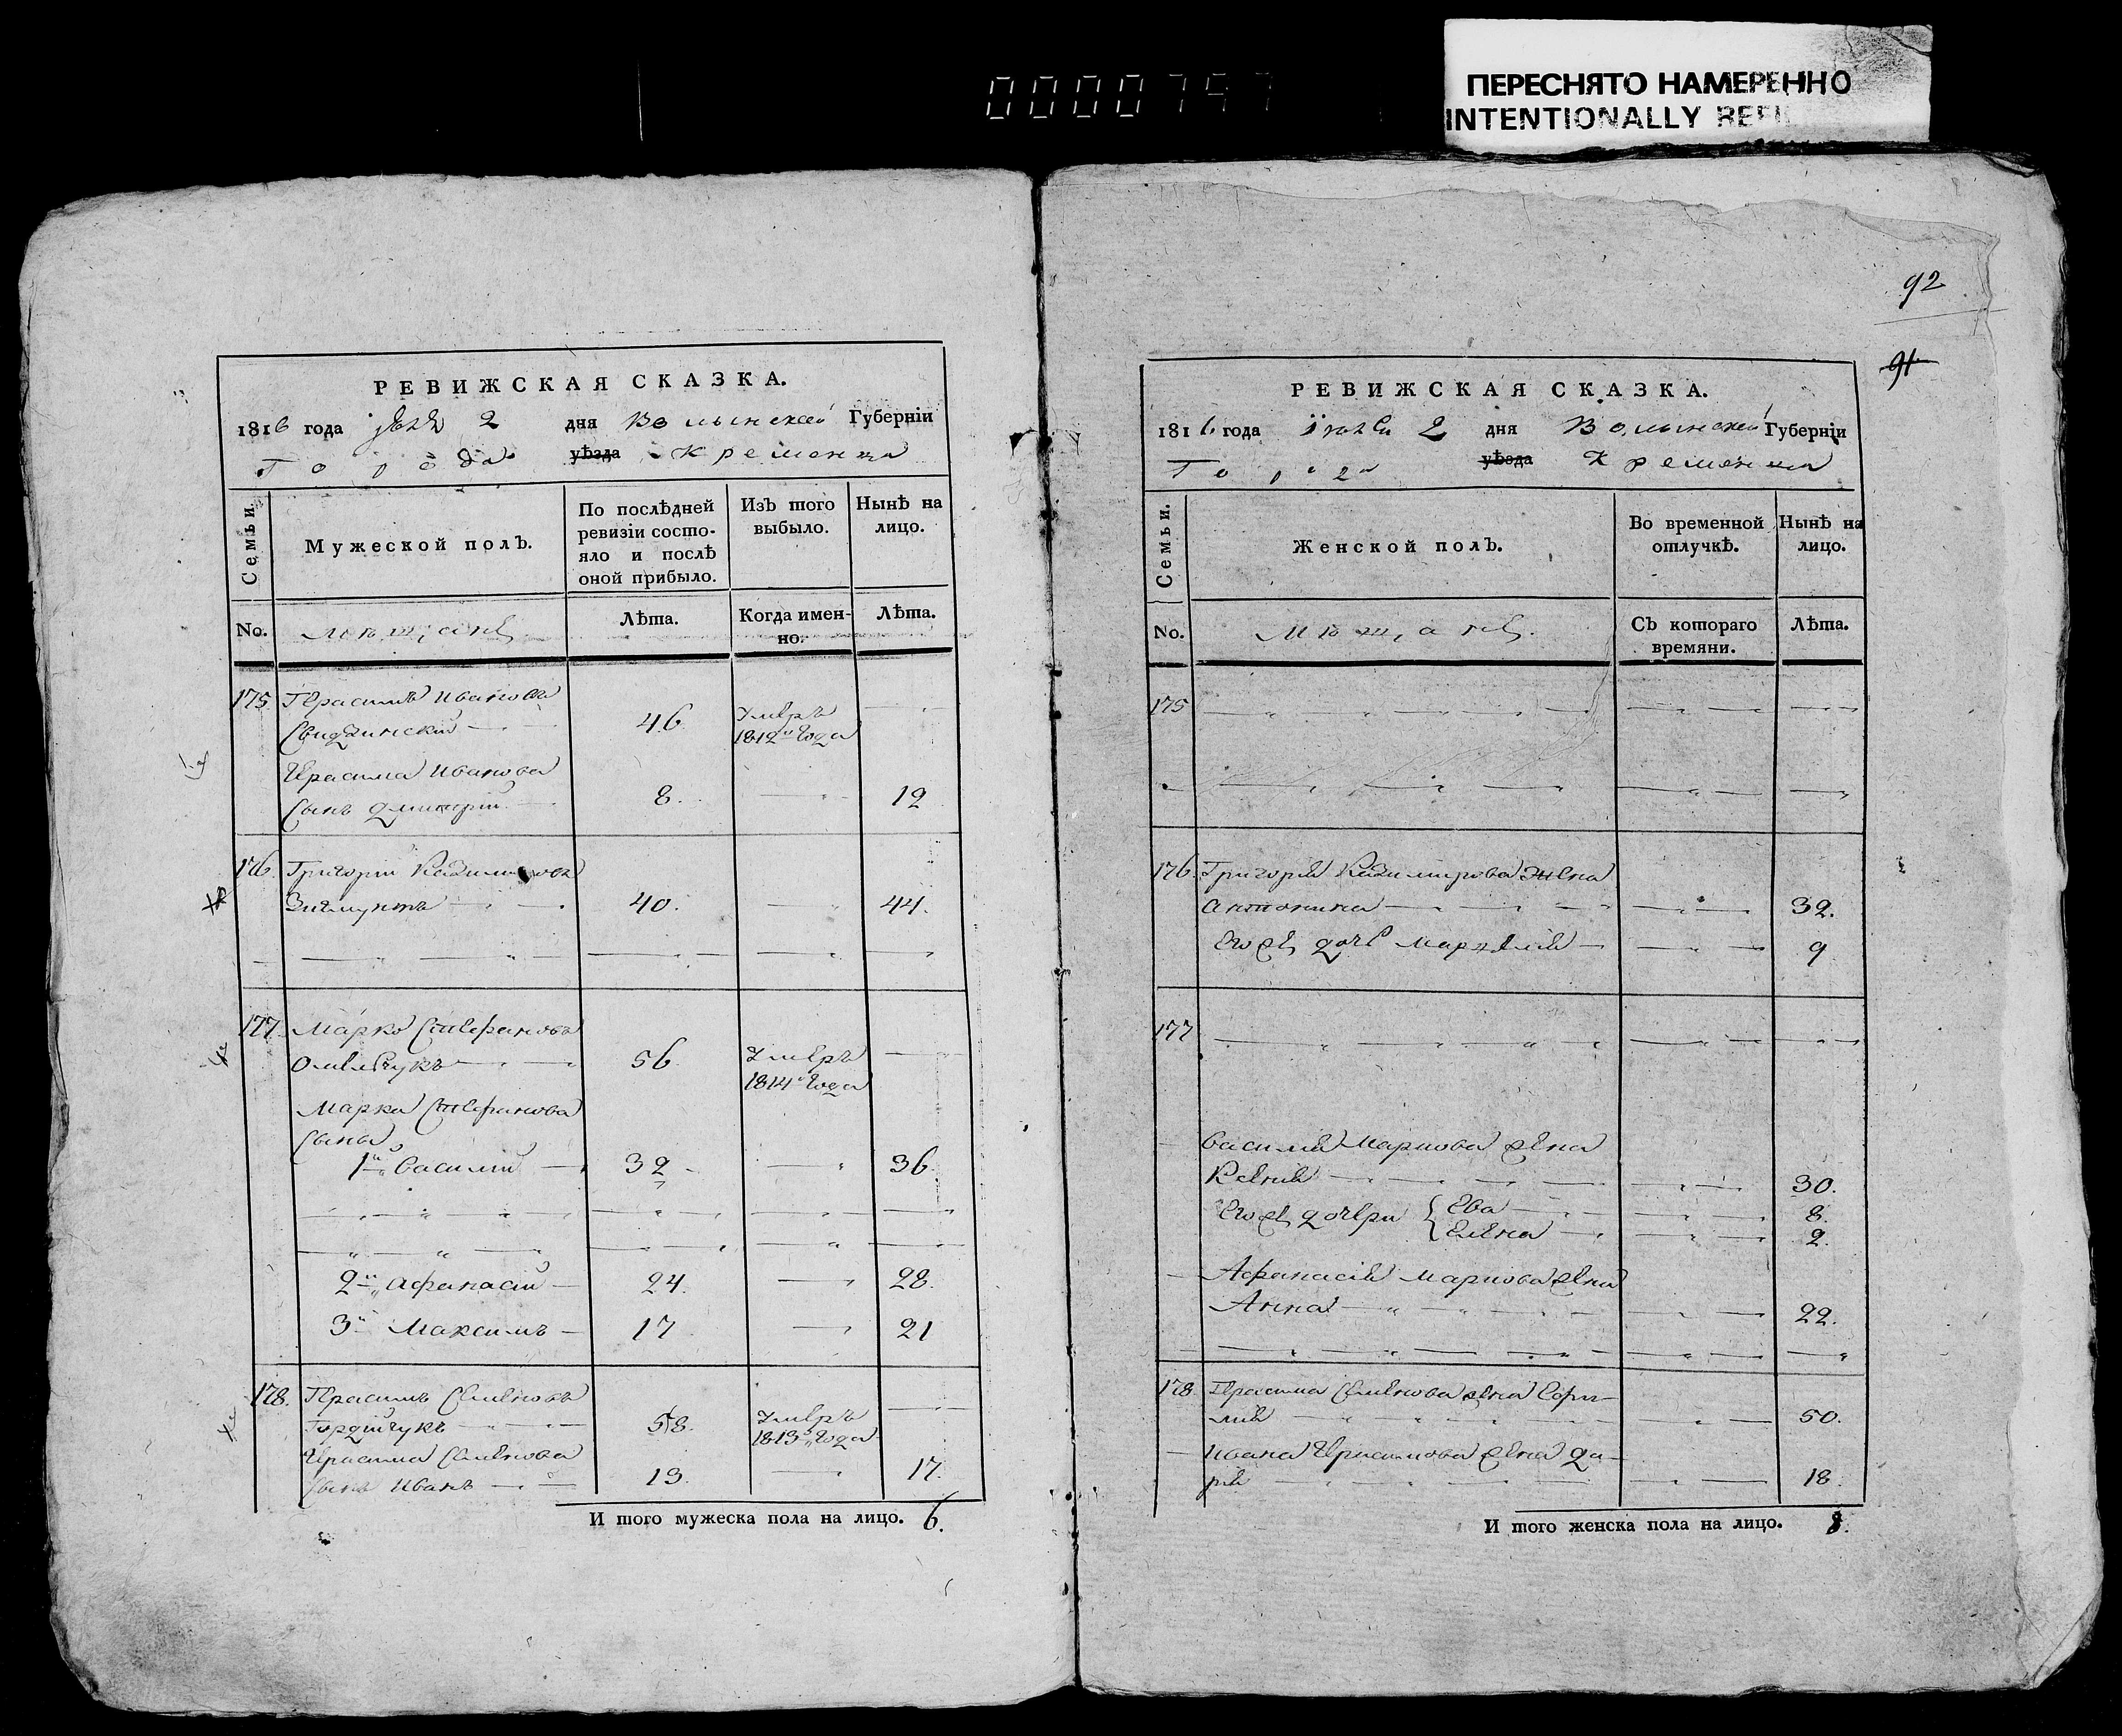 0000797
ПЕРЕСНЯТО НАМЕРЕННО
INTENTIONALLY REFIL
РЕВИЖСКАЯ СКАЗКА.
1816 года 2 дня Волынской Губерніи
Города уѣзда Кременца
Семьи.
Мужеской полъ.
По послѣдней ревизіи состо-
яло и послѣ
оной прибыло.
Изъ того
выбыло.
Нынѣ на
лицо.
No.
мѣщанѣ
Лѣта.
Когда имен-
но.
Лѣта.
175 Герасимъ Ивановъ
Свидзинскій 46. Умеръ
1812го года
Герасима Иванова
Сынъ Дмитрій 8. 12
176. Григорій Казимировъ
Зигмунтъ 40. 44.
177. Марко Стефановъ
Омельчукъ 56 Умеръ
1814го года
Марка Стефанова
Сына
1й Василій 32 36
2й Афанасій 24. 28.
3й Максимъ 17 21
178. Герасимъ Семеновъ
Гордійчукъ 58. Умеръ
1813го года
Герасима Семенова
Сынъ Иванъ 13. 17.
И того мужеска пола на лицо. 6.
92
91
РЕВИЖСКАЯ СКАЗКА.
1816. года Іюля 2 дня Волынской Губерніи
Города уѣзда Кременца
Семьи.
Женской полъ.
Во временной
отлучкѣ.
Нынѣ на
лицо.
No.
Мѣщанѣ.
Съ котораго
времяни.
Лѣта.
175
176. Григорія Казимирова жена
Антонина 32.
Его же дочь 9
177
Василія Маркова жена
Ксенія 30.
Его же дочери { Ева 8.
Елена 2.
Афанасія Маркова жена
Анна 22.
178. Герасима Семенова жена Софи-
мія 50.
Ивана Герасимова жена Да-
рія 18.
И того женска пола на лицо. 8.